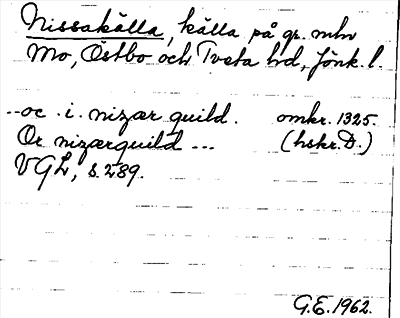 Nissakälla, källa på gr. mln
Mo, Östbo och Tveta hd, Jönk. l.
--oc . i. nizær quild. omkr. 1325.
Or nizærquild --- (hskr. D.)
VGL, s. 289.
G.E. 1962.